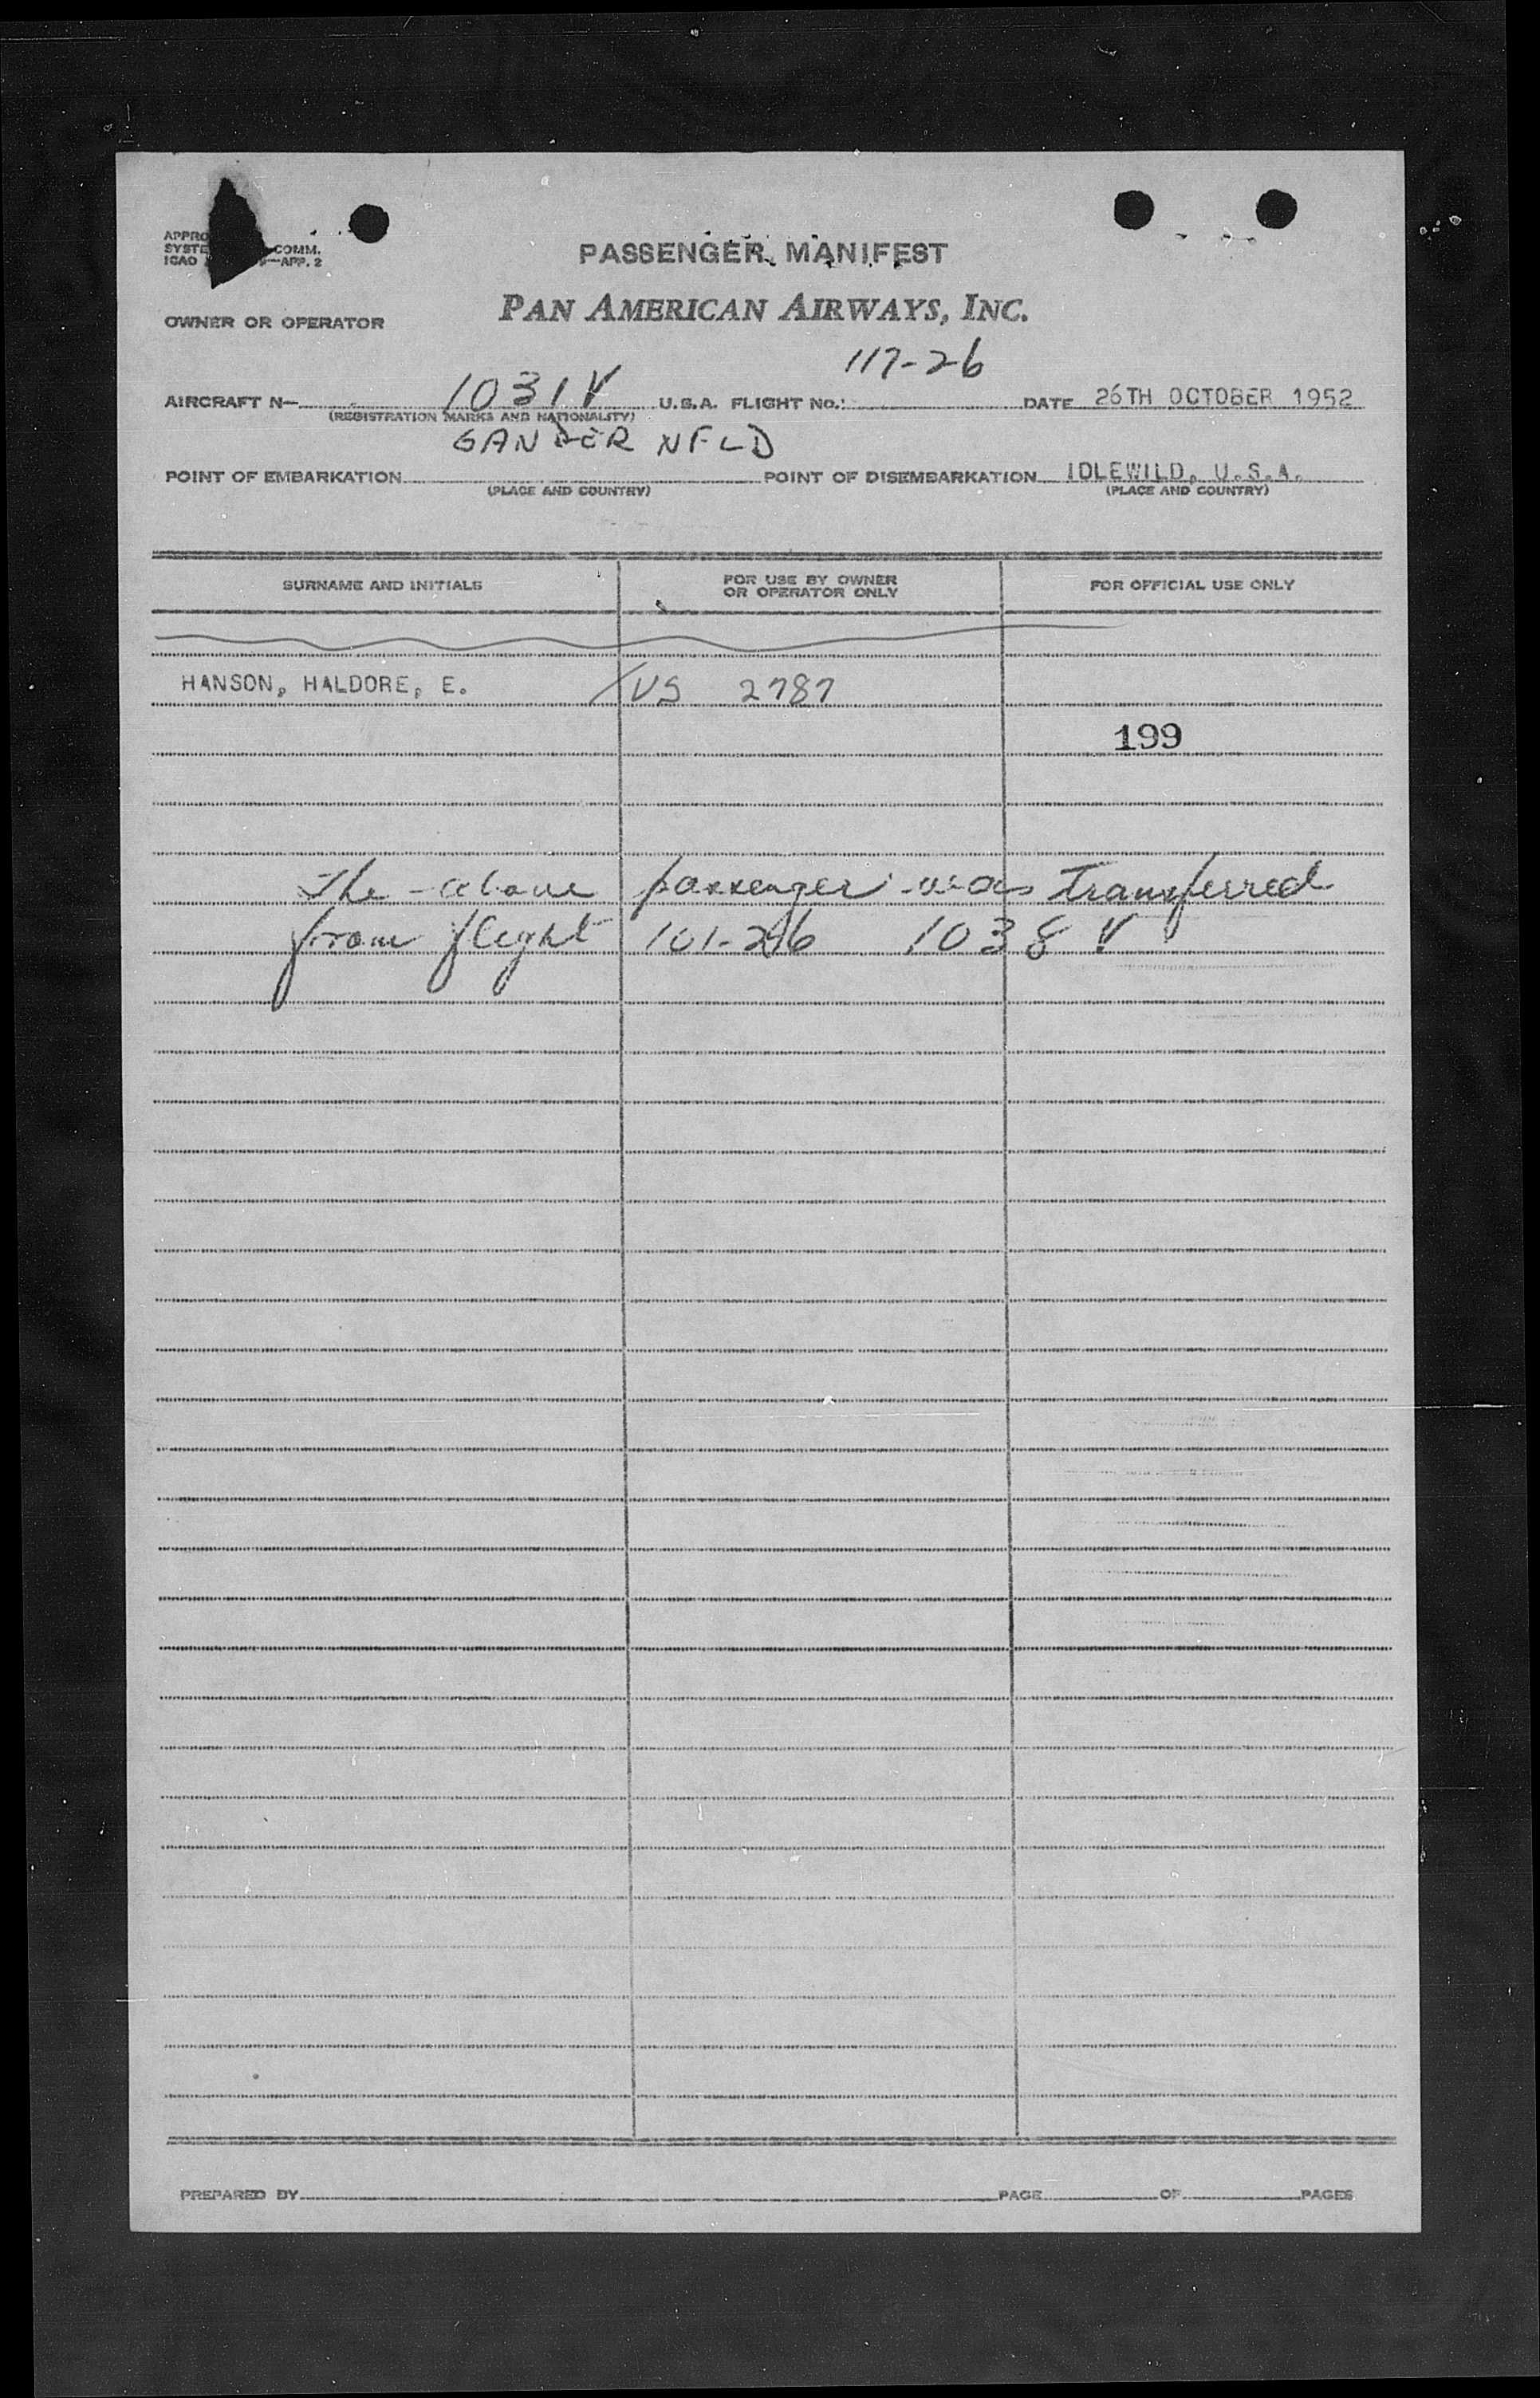 APPRO
SYSTE COMM.
ICAO —APP. 2
PASSENGER MANIFEST
OWNER OR OPERATOR PAN AMERICAN AIRWAYS, INC.
117-26
AIRCRAFT N— 1031V U.S.A. FLIGHT NO.: DATE 26TH OCTOBER 1952
(REGISTRATION MARKS AND NATIONALITY)
GANDER NFLD
POINT OF EMBARKATION POINT OF DISEMBARKATION IDLEWILD, U.S.A.
(PLACE AND COUNTRY) (PLACE AND COUNTRY)
SURNAME AND INITIALS FOR USE BY OWNER OR OPERATOR ONLY FOR OFFICIAL USE ONLY
HANSON, HALDORE, E. US 2787
199
The above passenger was transferred
from flight 101-26 1038 V
PREPARED BY PAGE OF PAGES